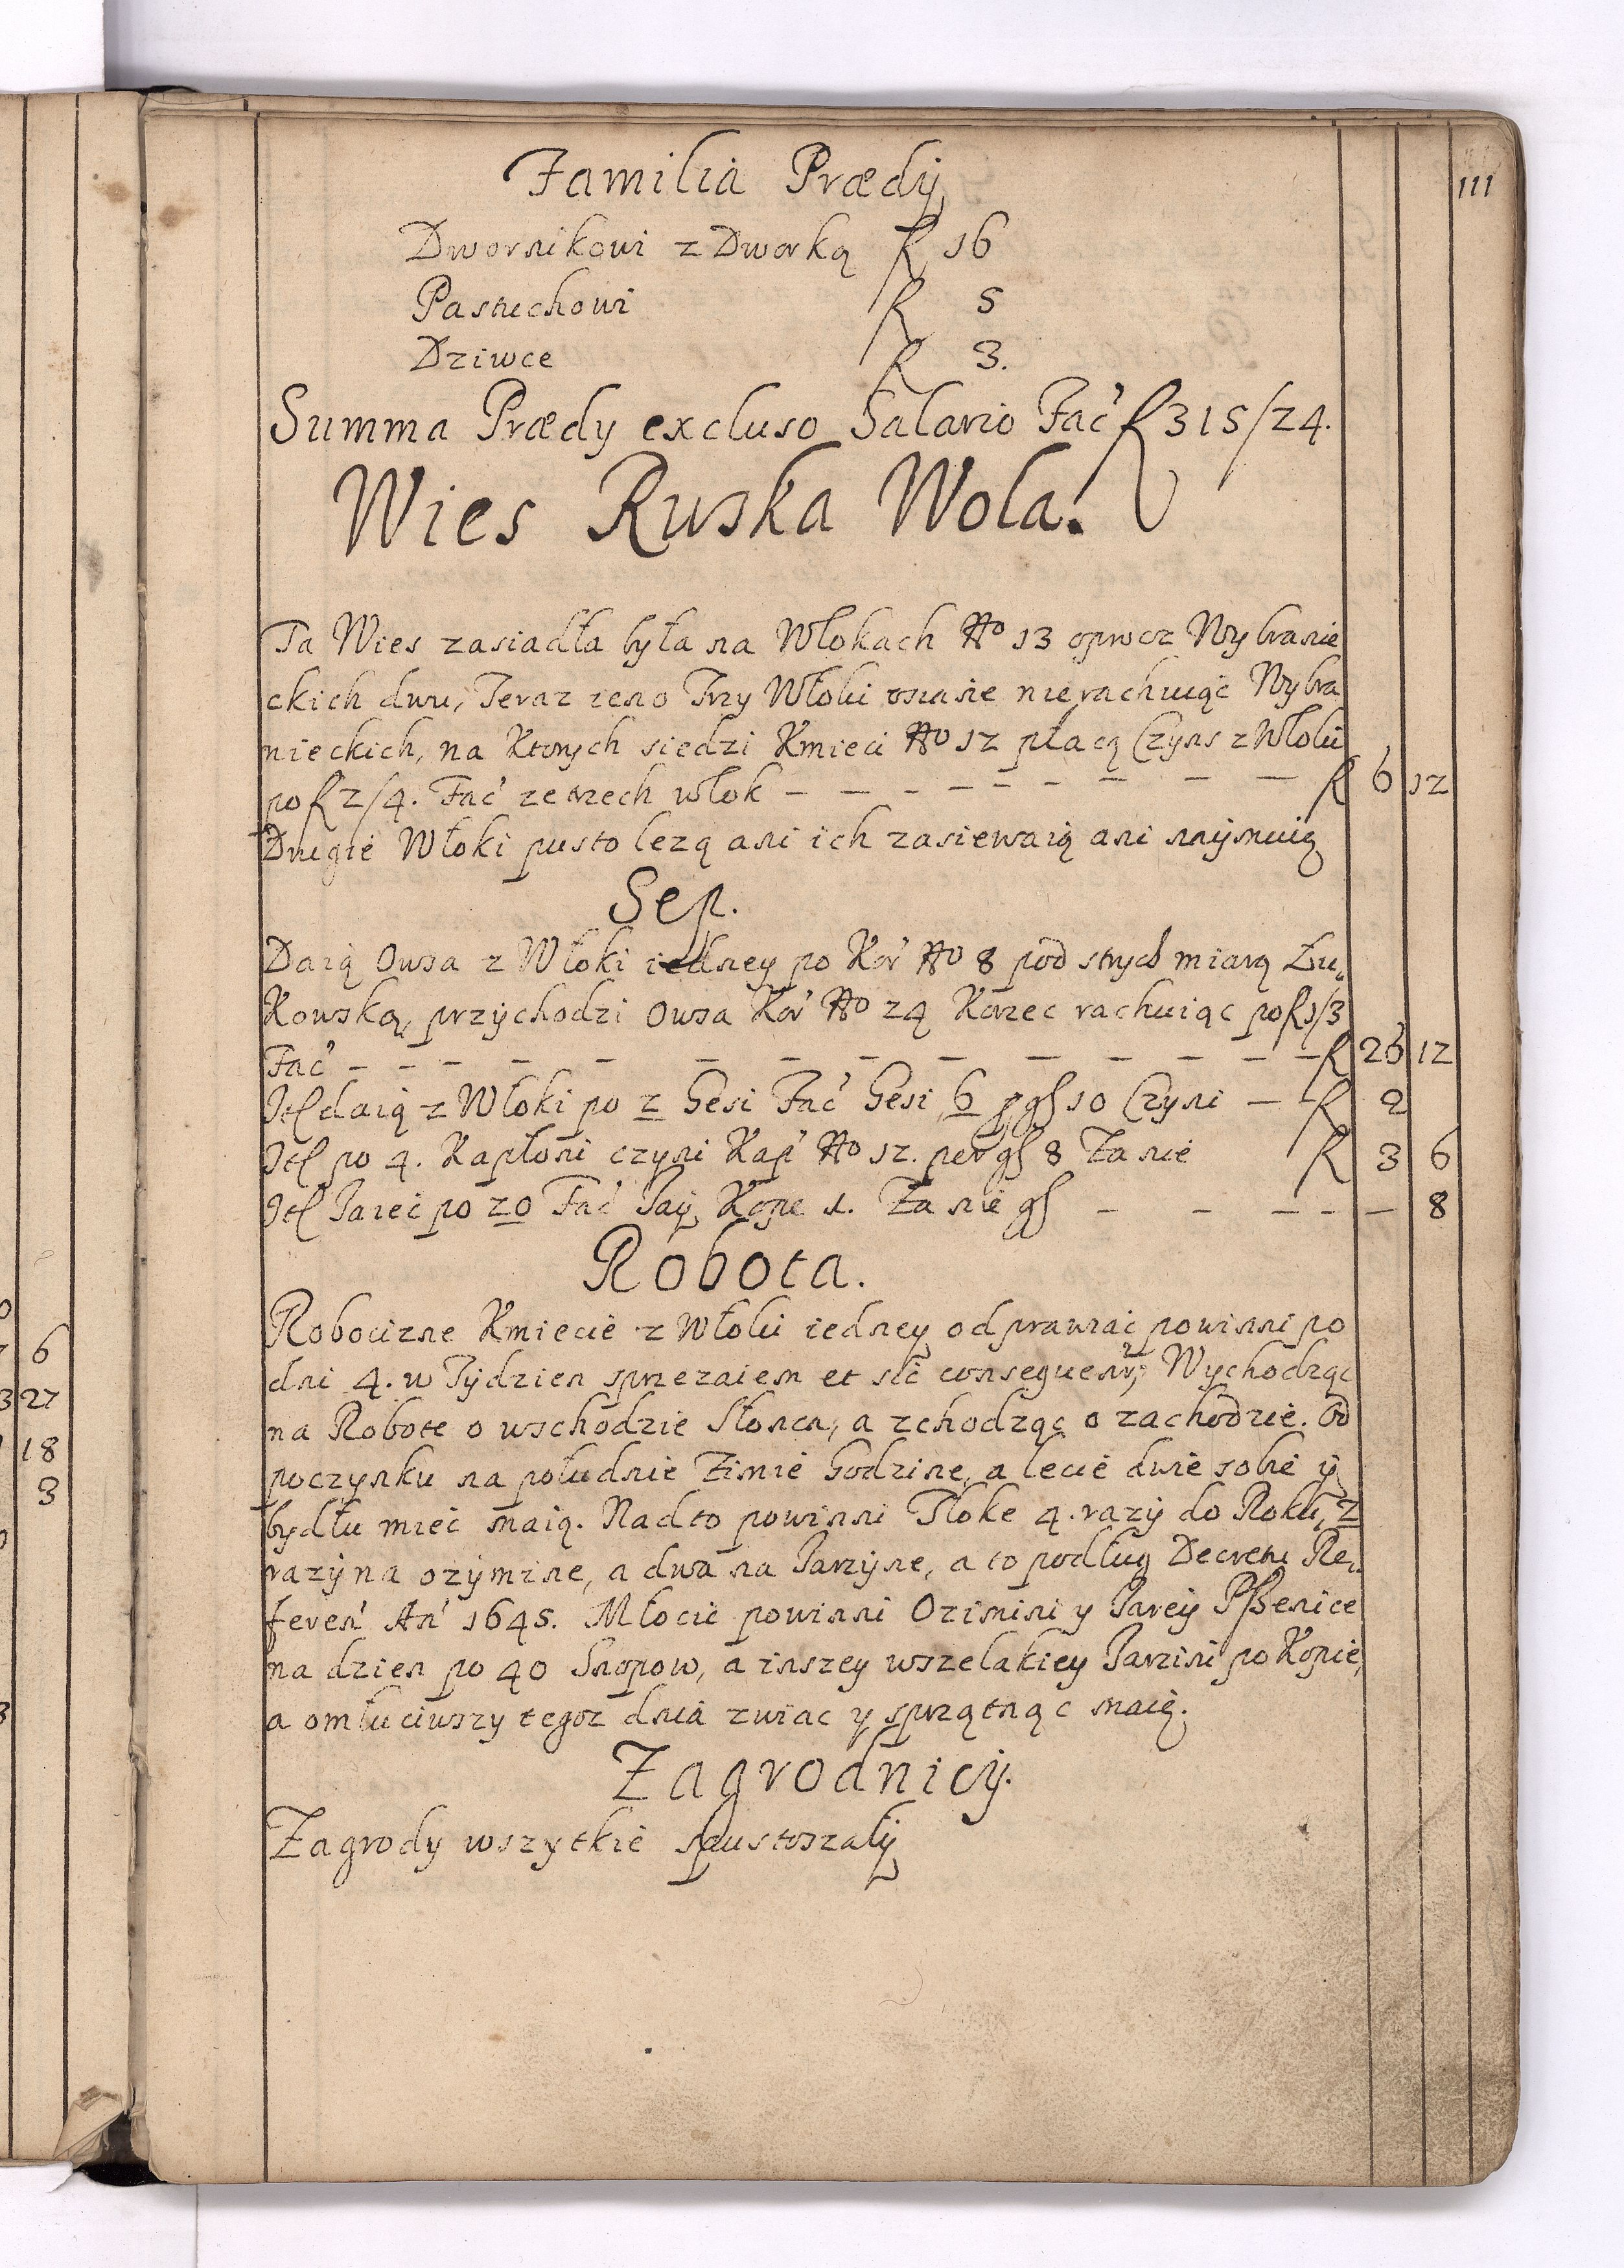 111
Familia Prædij
Dwornikowi z Dworką f 16
Pastuchowi f 5
Dziwce f 3.
Summa Prædy excluso Salario Fac̃ f 315/24.
Wies Ruska Wola.
Ta Wies zasiadła była na Włokach No 13 oprocz Wybranie
ckich dwu, Teraz ieno Trzy Włoki osiasie nie rachuiąc Wybra
nieckich, na Ktorych siedzi Kmieci No 12 płacą Czyns z Włoki
po f 2/4. Fac̃ ze trzech włok — — — — — — — — — f 6 12
Drugie Włoki pusto lezą ani ich zasiewaią ani naijmuią
Sep.
Daią Owsa z Włoki iedney po Kor̃ No 8 pod strych miarą Zu„
Kowską, przychodzi Owsa Kor̃ No 24 Korzec rachuiąc po f 1/3
Fac̃ — — — — — — — — — — — — — f 26 12
Itl daią z Włoki po 2 Gesi Fac̃ Gesi 6 p gl 10 Czyni — f 2
Itl po 4. Kapłoni czyni Kap̃ No 12. per gl 8 Za nie f 3 6
Itl Jaiec po 20 Fac̃ Jaij Kope 1. Za nie gl — — — — — 8
Robota.
Robocizne Kmiecie z Włoki iedney odprawiac powinni po
dni 4. w Tydzien sprzezaiem et sic consequentr; Wychodząc
na Robote o wschodzie Słonca, a zchodząc o zachodzie. Od
poczynku na południe Zimie Godzine, a lecie dwie sobie ij
bydłu miec maią. Nadto powinni Tłoke 4. razy do Roku, 2
razy na ozymine, a dwa na Jarzyne, a to podług Decretu Re„
feren̉ An̉ 1645. Młocic powinni Ozimini y Jarey Pszenice
na dzien po 40 Snopow, a inszey wszelakiey Jarzini po Kopie,
a omłuciwszy tegoz dnia zwiac y sprzątnąc maią.
Zagrodnicij.
Zagrody wszytkie spustoszałij
6
27
18
3